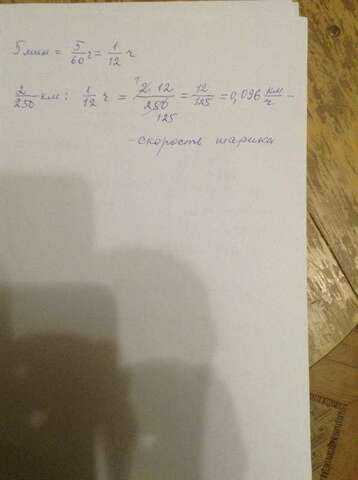 5 мин = 5/60 ч = 1/12 ч
2/250 км : 1/12 ч = 2·12/250 = 12/125 = 0,096 км/ч -
1 125
- скорость шарика